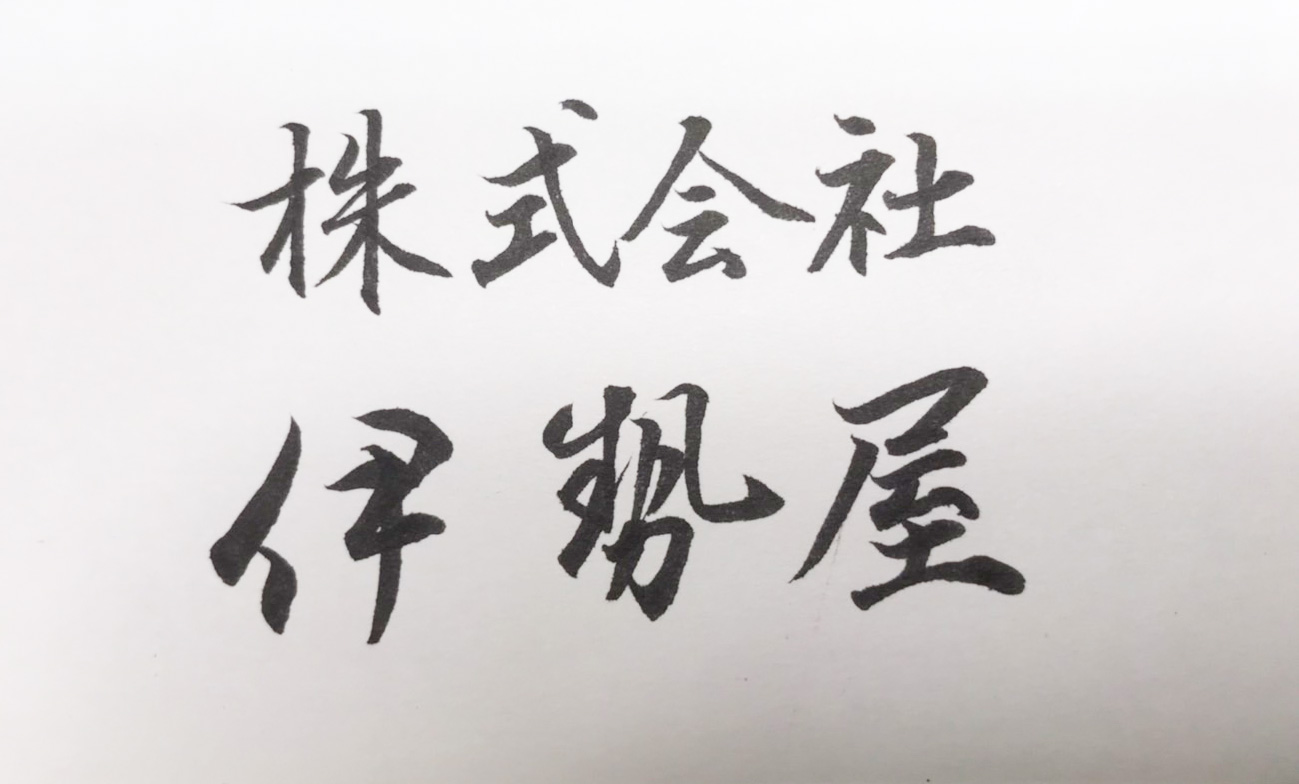 株式会社
伊勢屋